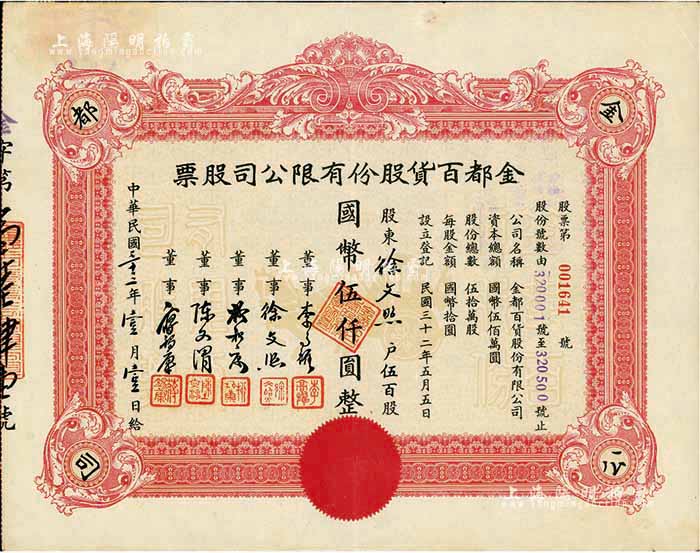 上海陽明拍賣
www.yangmingauction.com
金
都
公
司
金都百貨股份有限公司股票
股票第 001641 號
股份號數由320001號至320500號止
公司名稱 金都百貨股份有限公司
資本總額 國幣伍佰萬圓
股份總數 伍拾萬股
每股金額 國幣拾圓
設立登記 民國三十二年五月五日
股東徐文照戶伍百股
國幣伍仟圓整
董事
董事徐文照
董事
董事陳文渭
董事
中華民國三十二年壹月壹日給
字第
號
上海陽明拍賣
上海陽明拍賣
www.yangmingauction.com